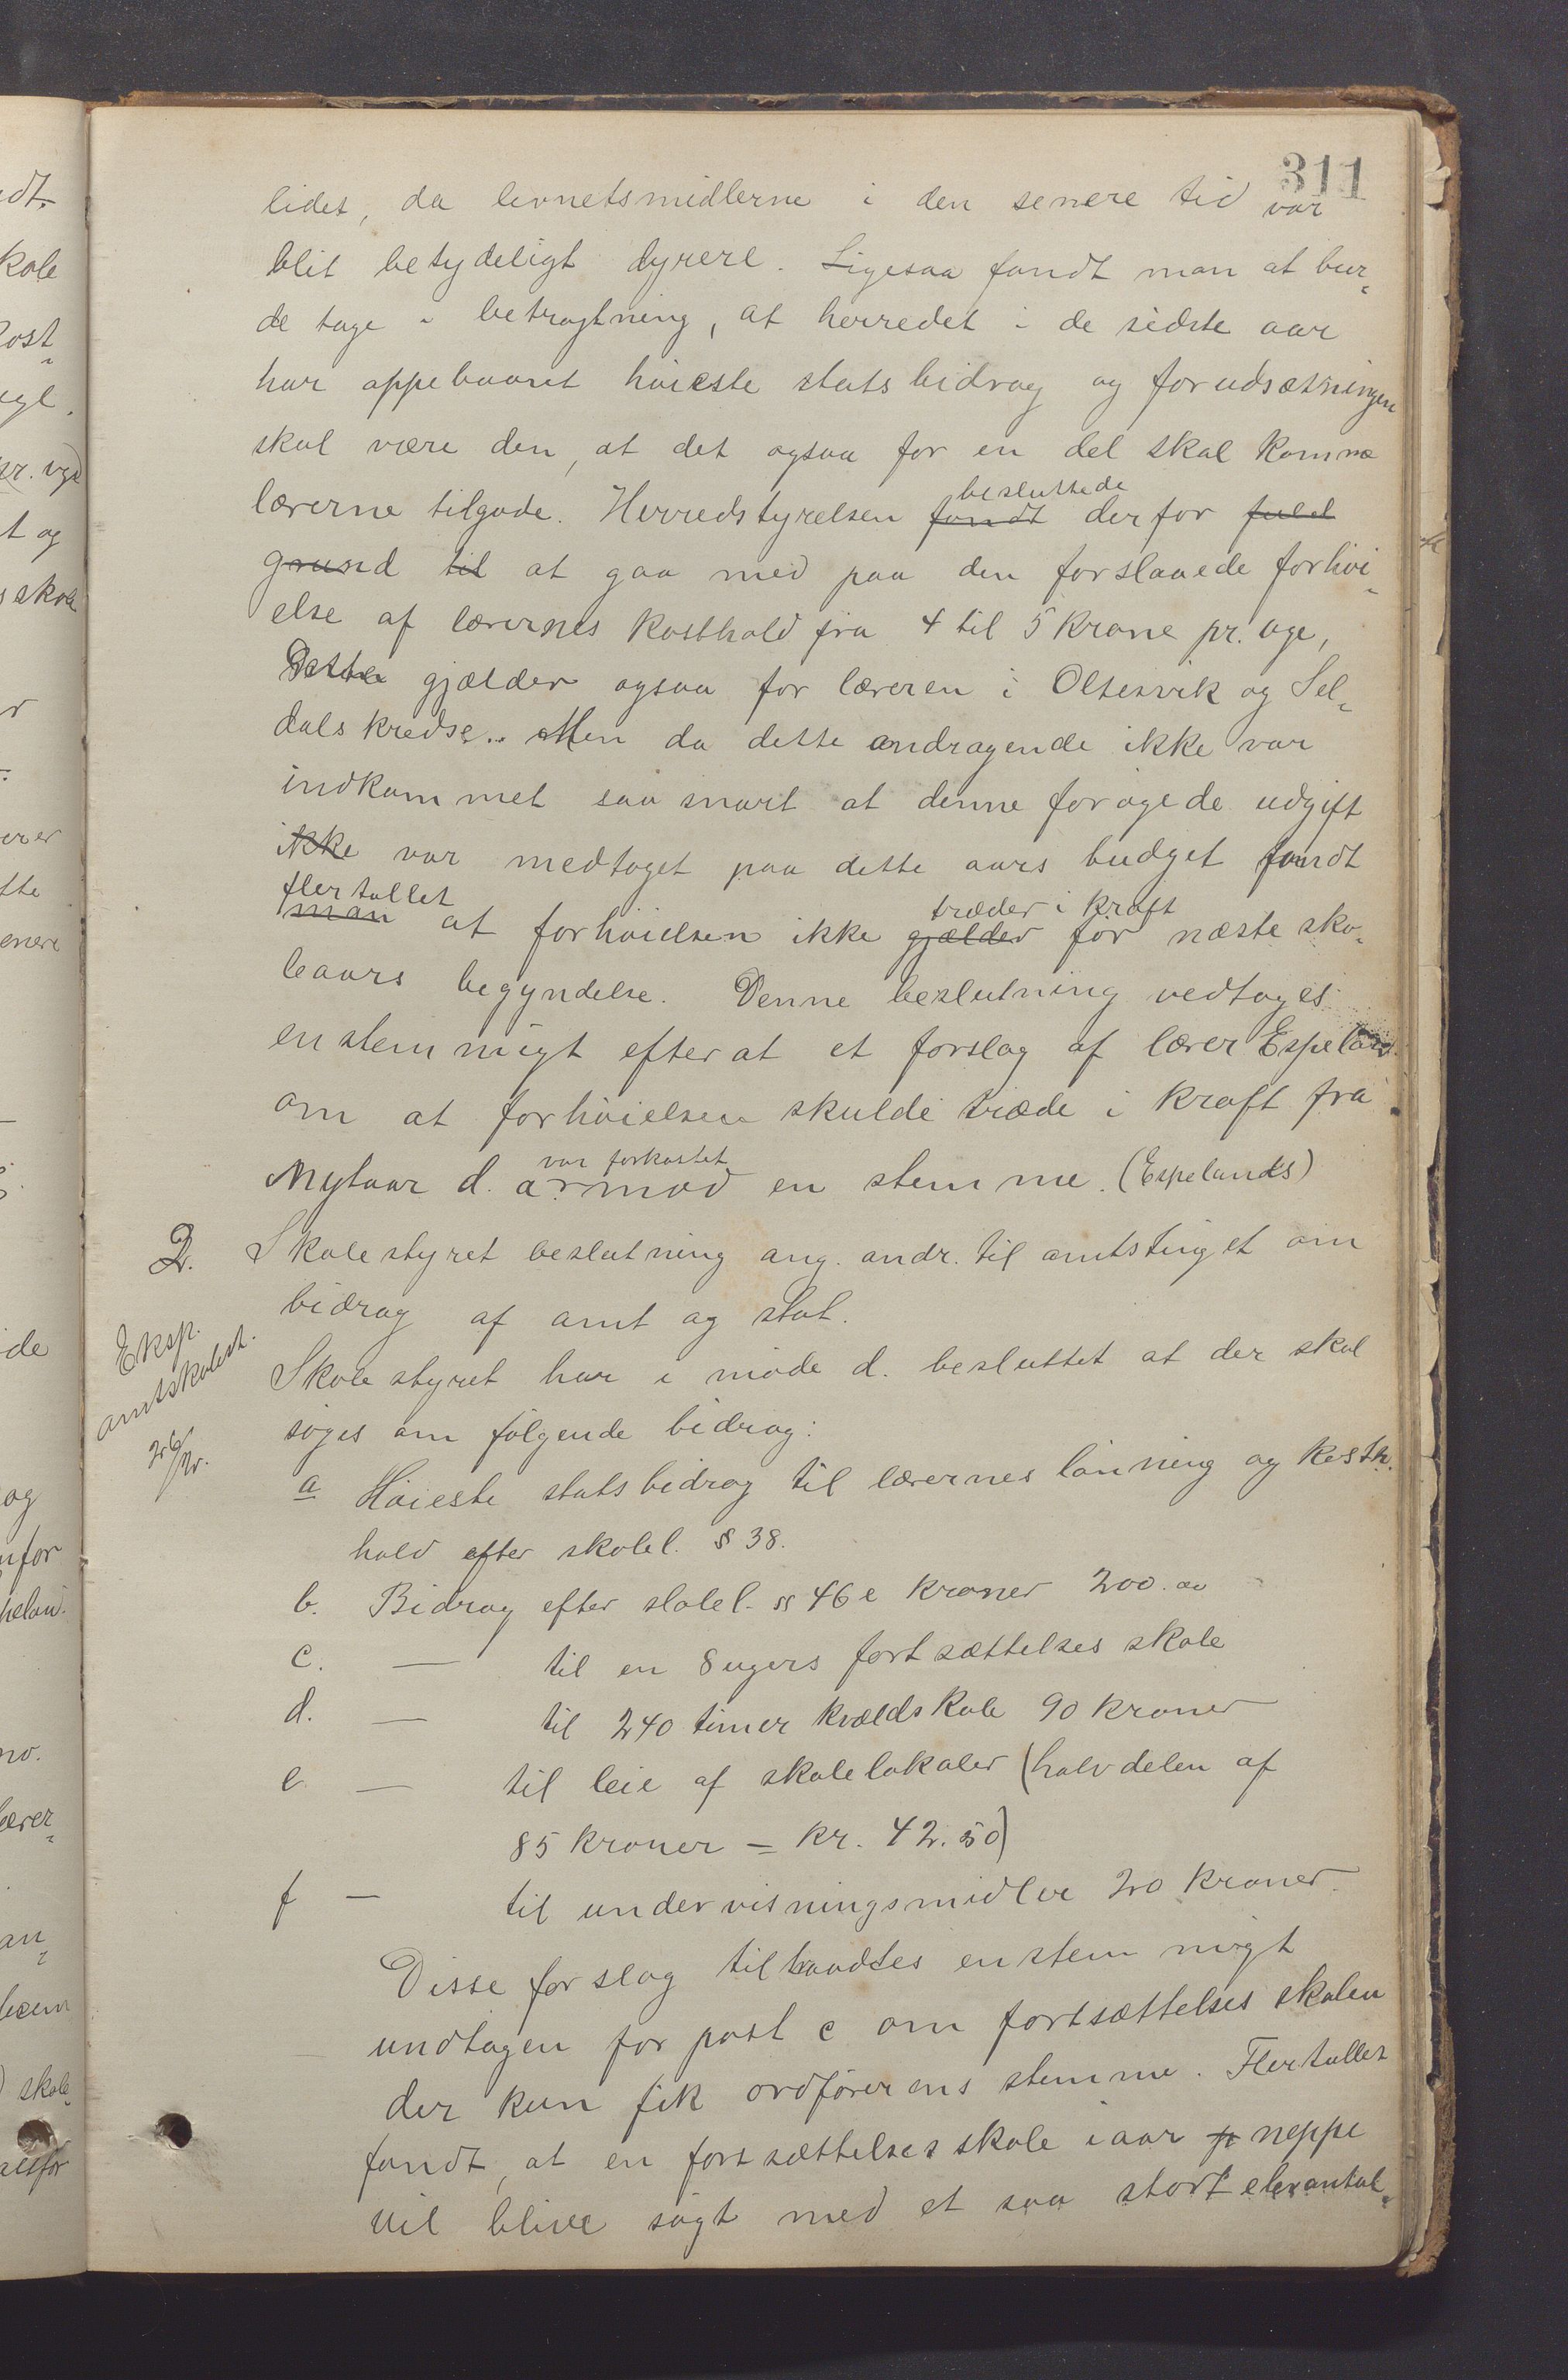 311
lidet, da levnetsmidlerne i den senere tid var
blit betydeligt dyrere. Ligesaa fandt man at bur-
de tage i betragtning, at herredet i de sidste aar
har oppebaaret høieste statsbidrag og forudsætningen
skal være den, at det ogsaa for en del skal komme
lærerne tilgode. Herredstyrelsen fandt besluttede derfor fuld
grund til at gaa med paa den forslaaede forhøi-
else af lærernes kosthold fra 4 til 5 krone pr. uge,
Dette gjælder ogsaa for læreren i Oltesvik og Sel-
dals kredse.. Men da dette andragende ikke var
indkommet saa snart at denne forøgede udgift
ikke var medtaget paa dette aars budget fandt
man flertallet at forhøielsen ikke gjælder træder i kraft før næste sko-
leaars begyndelse. Denne beslutning vedtoges
enstemmigt efterat et forslag af lærer Espeland
om at forhøielsen skulde træde i kraft fra
Nytaar d. a. var forkastet mod en stemme. (Espelands)
2. Skolestyret beslutning ang. andr. til amtstinget om
bidrag af amt og stat.
Eksp.
amtskolest.
26/2.
Skolestyret har i møde d. besluttet at der skal
søges om følgende bidrag:
a Høieste statsbidrag til lærernes lønning og kosth.
hold efter skolel. § 38.
b. Bidrag efter slolel. §§ 46 e kroner 200.00
c. — til en 8 ugers fortsættelses skole
d. — til 240 timer kvældskole 90 kroner
e — til leie af skolelokaler (halvdelen af
85 kroner = kr. 42.50)
f — til undervisningsmidler 20 kroner.
Disse forslag tiltraadtes enstemmigt
undtagen for post c om fortsættelses skolen
der kun fik ordførerens stemme. Flertallet
fandt, at en fortsættelsesskole iaar neppe
vil blive søgt med et saa stort elevantal-